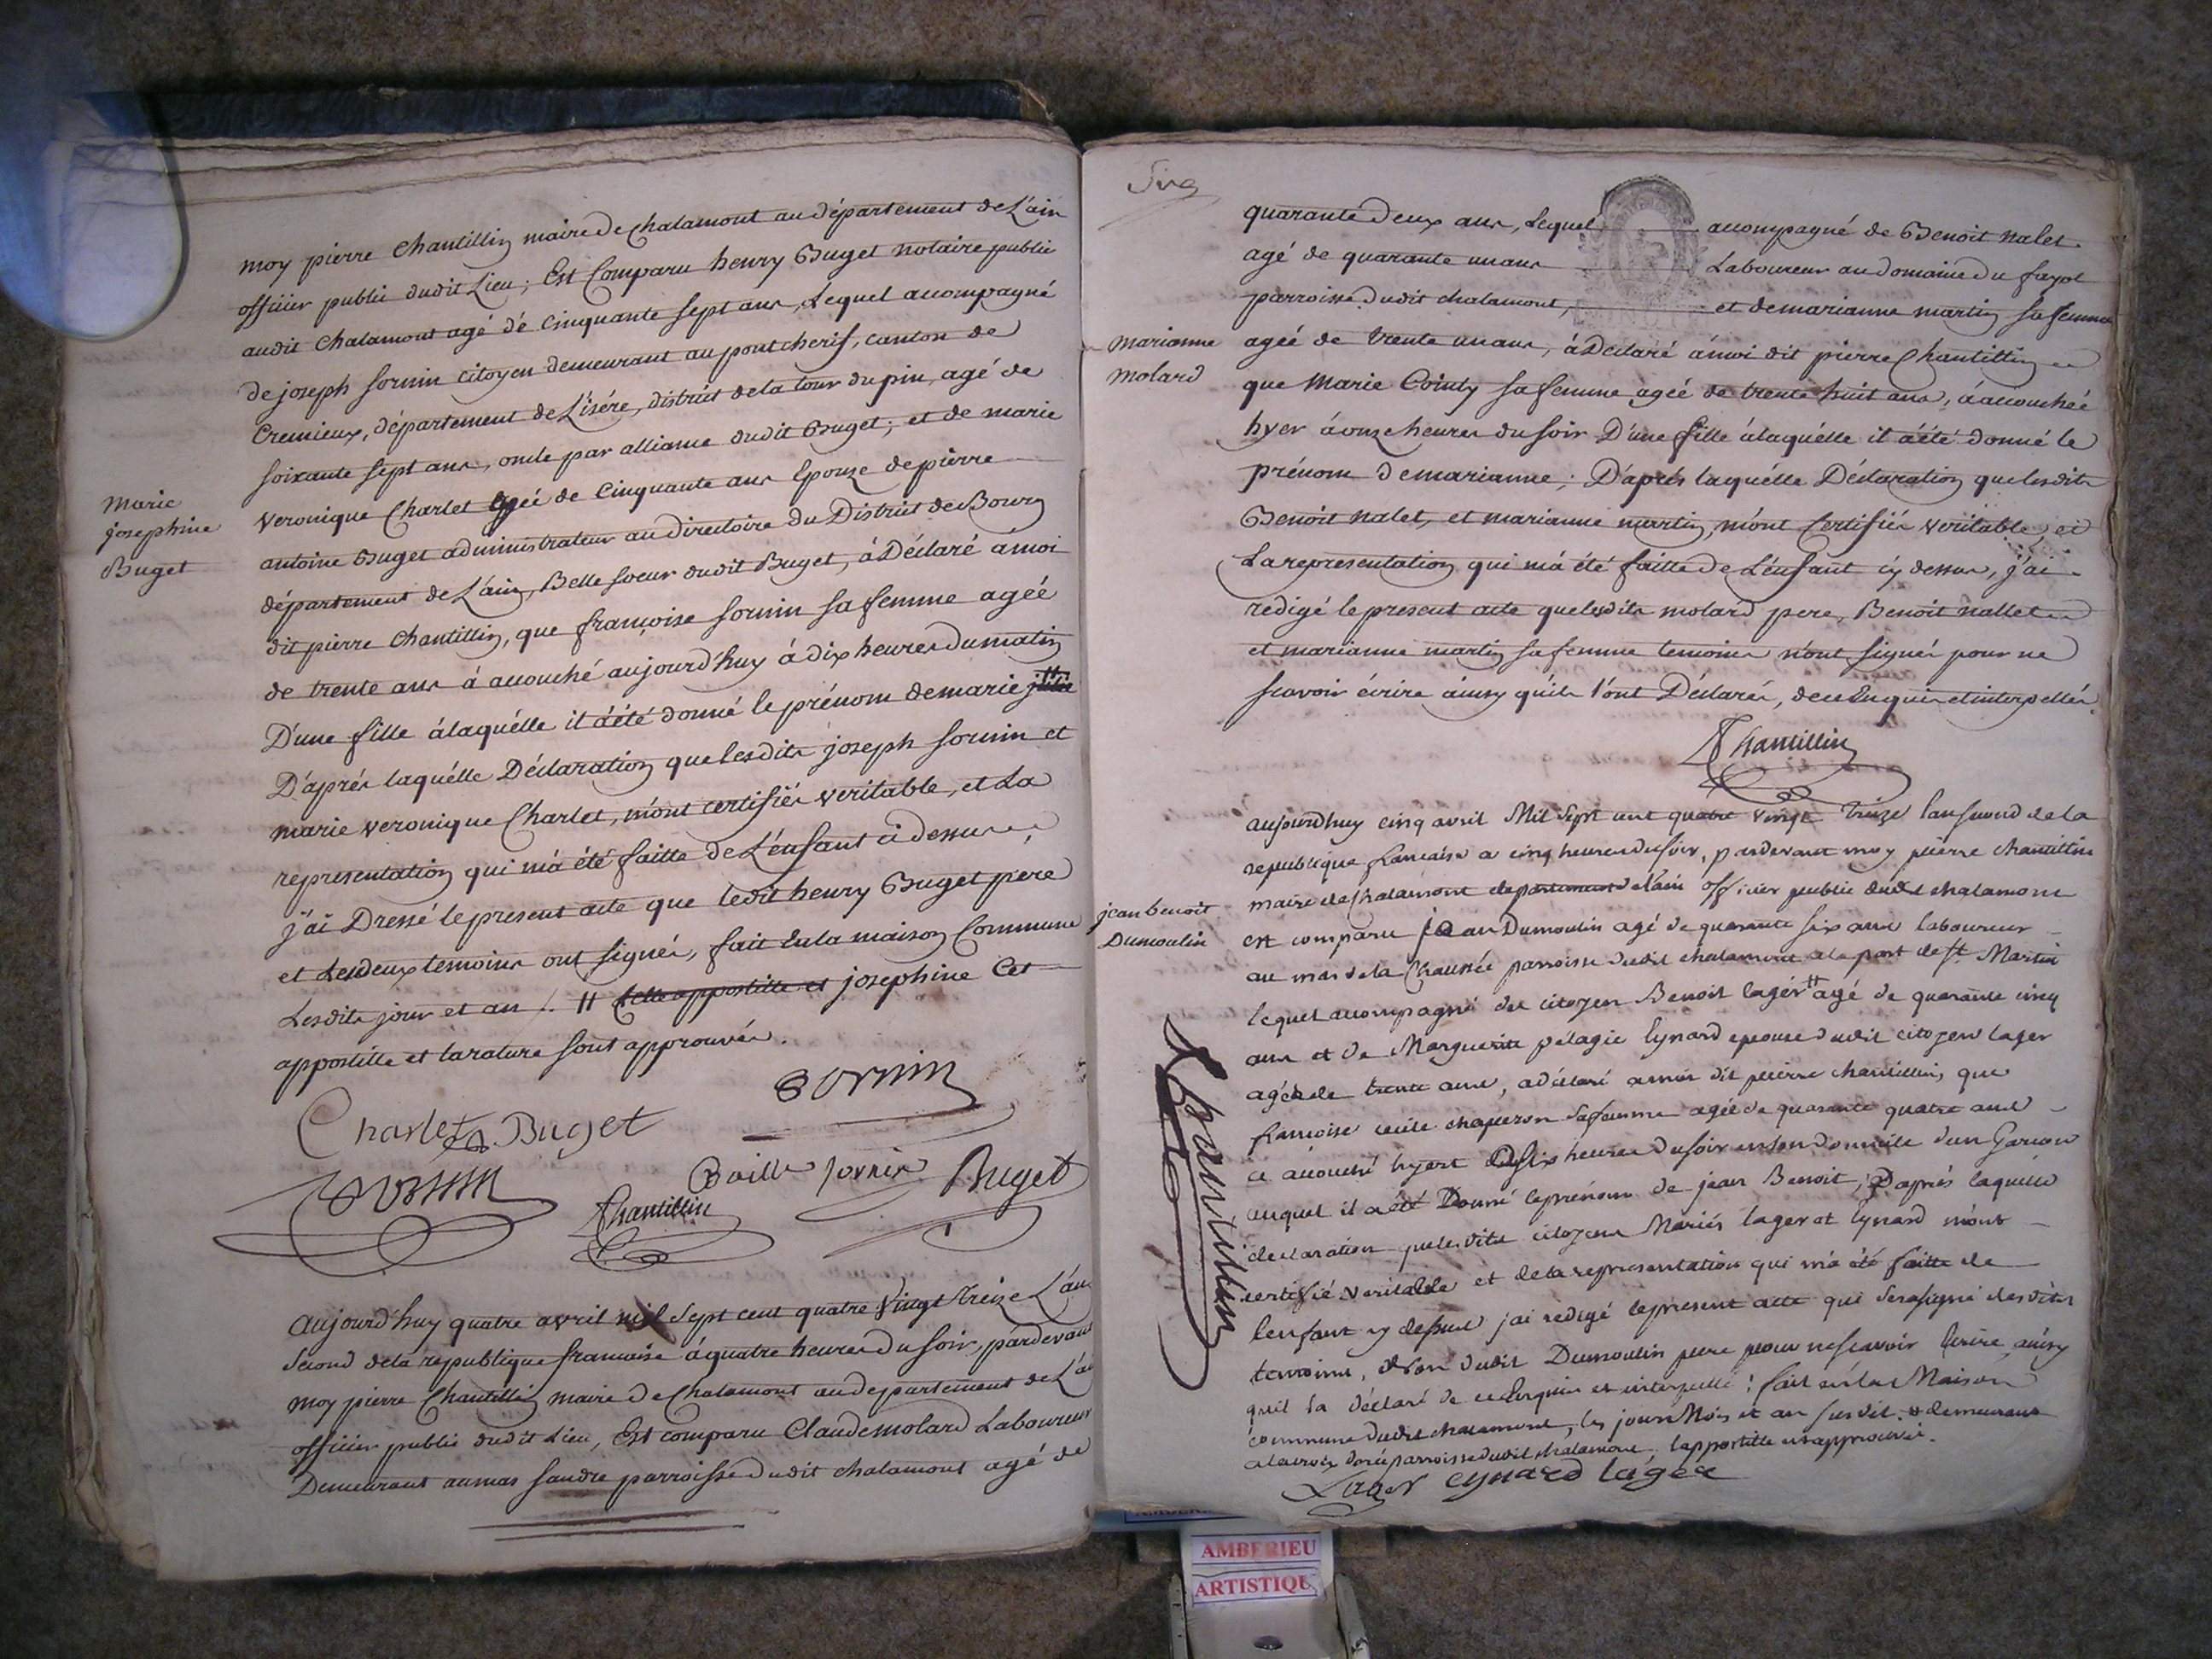 moy pierre Chantillin maire de chalamont au département de L'ain
officier public dudit Lieu; Est Comparu henry Buget notaire public
audit Chalamont agé dé Cinquante sept ans, Lequel accompagné
de joseph sornin citoyen demeurant au pontcherif, canton de
Cremieux, département de L'isére, district de la tour du pin, agé de
soixante sept ans, oncle par alliance dudit Buget; et de marie
veronique Charlet agéé de Cinquante ans Epouze de pierre
antoine Buget administrateur au directoire du District de Bourg
département de L'ain, Belle soeur dudit Buget, á Déclaré amoi
dit pierre Chantillin, que françoise sornin sa femme agéé
de trente ans á accouché aujourd'huy á dix heures du matin
D'une fille álaquélle il áété donné le prénom de marie
D'aprés laquélle Déclaration que lesdits joseph sornin et
marie veronique Charlet, m'ont certifiés veritable, et La
representation qui m'a été faitte de L'enfant ci dessus,
j'ai Dressé le present acte que ledit henry Buget pere
et Lesdeux temoins ont signés, fait En la maison Commune
Lesdits jour et an /. # josephine Cet
appostille et la rature sont approuvés.
marie
josephine
Buget
Charlet Buget
Sornin
Sornin
Chantillin
Baille sornin
Buget
Aujourd'huy quatre avril mil sept cent quatre Vingt Treize L'an
Second dela republique francaise áquatre heures du soir, pardevant
moy pierre Chantillin maire de Chalamont au departement de L'ai
officier public dudit Lieu, Est comparu Claude molard Laboureur
Demeurant au mas sandre parroisse dudit chalamont agé de
quarante deux ans, Lequel accompagné de Benoit nalet
agé de quarante un ans Laboureur au Domaine du fayol
parroisse dudit chalamont, et de marianne martin sa femme
agéé de trente un ans, á Déclaré ámoi dit pierre Chantillin
que Marie Cointy sa femme agéé de trente huit ans, á accouchéé
hyer á onze heures du soir D'une fille álaquélle il áété donné le
prénom de marianne; D'aprés laquélle Déclaration que lesdits
Benoit nalet, et marianne martin, m'ont Certifiés veritable, et
La representation qui m'á été faitte de L'enfant cy dessus, j'ai
redigé le present acte que lesdits molard pere, Benoit nallet
et marianne martin sa femme temoins n'ont signés pour ne
scavoir écrire áinsy qu'ils l'ont Déclarés, de ce Enquis et interpellés.
marianne
molard
Chantillin
aujourdhuy cinq avril Mil Sept cent quatre vingt Treize lan second de la
republique francaise a cinq heures du soir, pardevant moy pierre chantillin
maire de Chalamont departement de lain officier public dudit chalamont
est comparu jean Dumoulin agé de quarante six ans laboureur
au mas de la Chaussée parroisse dudit chalamont a la part de st. Martin
lequel accompagné du citoyen Benoit lager # agé de quarante cinq
ans et de Marguerite pélagie Eynard epouse dudit citoyen lager
agée de trente ans, a déclaré a moi dit pierre chantillin, que
francoise cecile chaperon sa femme agée de quarante quatre ans
a accouché hyert a six heures du soir en son domicile d'un Garcon
auquel il a été Donné le prénom de jean Benoit; D'aprés laquelle
declaration que lesdits citoyens Mariés lager et Eynard m'ont
certifié veritable et de la representation qui m'a été faitte de
lenfant cy dessus jai redigé le present acte qui sera signé des dits
temoins, et non dudit Dumoulin pere pour ne scavoir Ecrire ainsy
quil la déclaré de ce Enquis et interpellé; fait en la Maison
commune dudit chalamont, les jour Mois et an susdit. # demeurant
a la croix dorée parroisse dudit chalamont, lappostille est approuvée.
jean benoit
Dumoulin
Chantillin
Lager eynard lager
AMBERIEU
ARTISTIQU